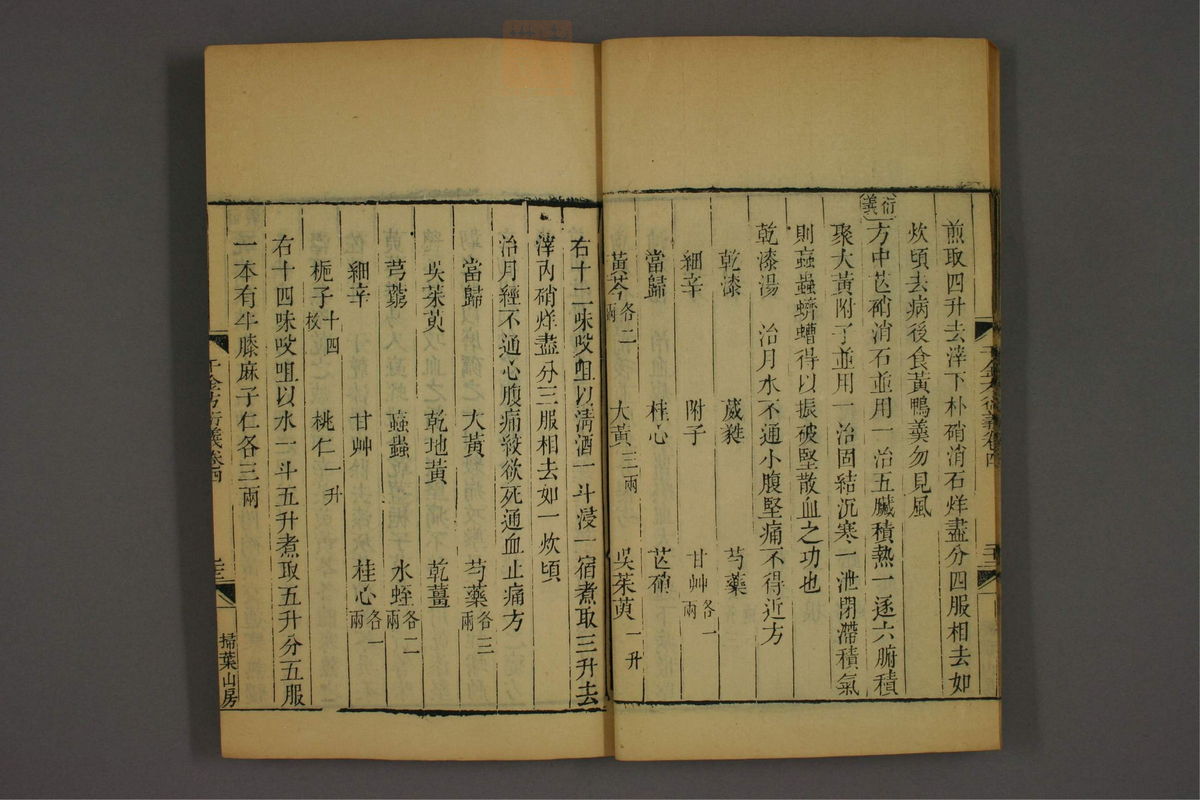 煎取四升去滓下朴硝消石烊盡分四服相去如
炊頃去病後食黃鴨羹勿見風
衍義
方中芒硝消石並用一治五臟積熱一逐六腑積
聚大黃附子並用一治固結沉寒一泄閉滯積氣
則蝱蟲蠐螬得以振破堅散血之功也
乾漆湯 治月水不通小腹堅痛不得近方
乾漆 葳蕤 芍藥
細辛 附子 甘艸各一兩
當歸 桂心 芒硝
黃芩各二兩 大黃三兩 吳茱萸一升
右十二味㕮咀以清酒一斗浸一宿煮取三升去
滓內硝烊盡分三服相去如一炊頃
治月經不通心腹痛絞欲死通血止痛方
當歸 大黃 芍藥各三兩
吳茱萸 乾地黃 乾薑
芎藭 蝱蟲 水蛭各二兩
細辛 甘艸 桂心各一兩
梔子十四枚 桃仁一升
右十四味㕮咀以水一斗五升煮取五升分五服
一本有牛膝麻子仁各三兩
千金方衍義卷四
掃葉山房